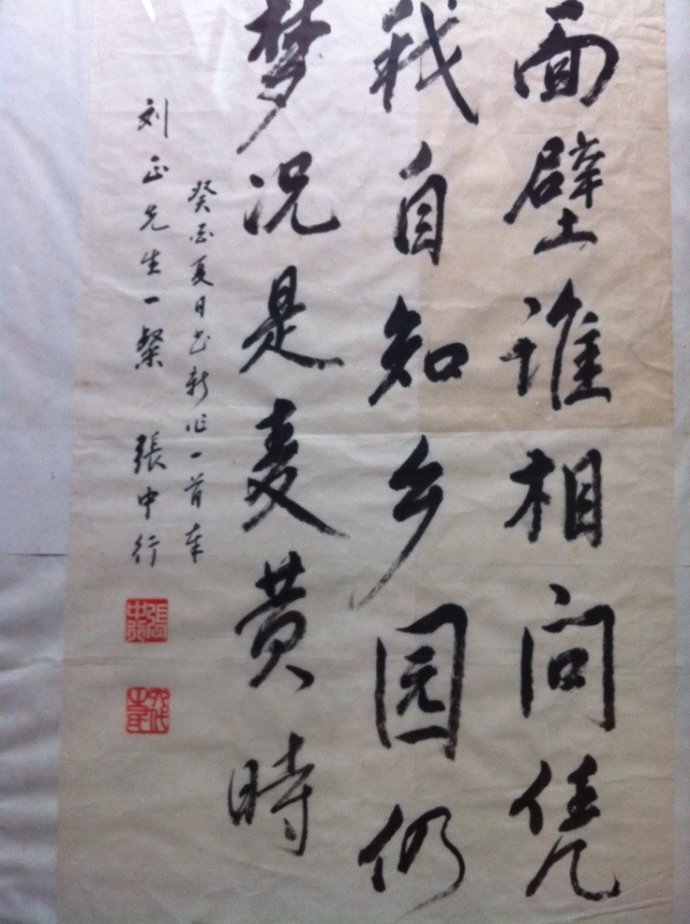 面壁谁相问凭
我自知乡园仍
梦况是麦黄時
癸酉夏日书新作一首奉
刘正先生一粲 張中行
張中行